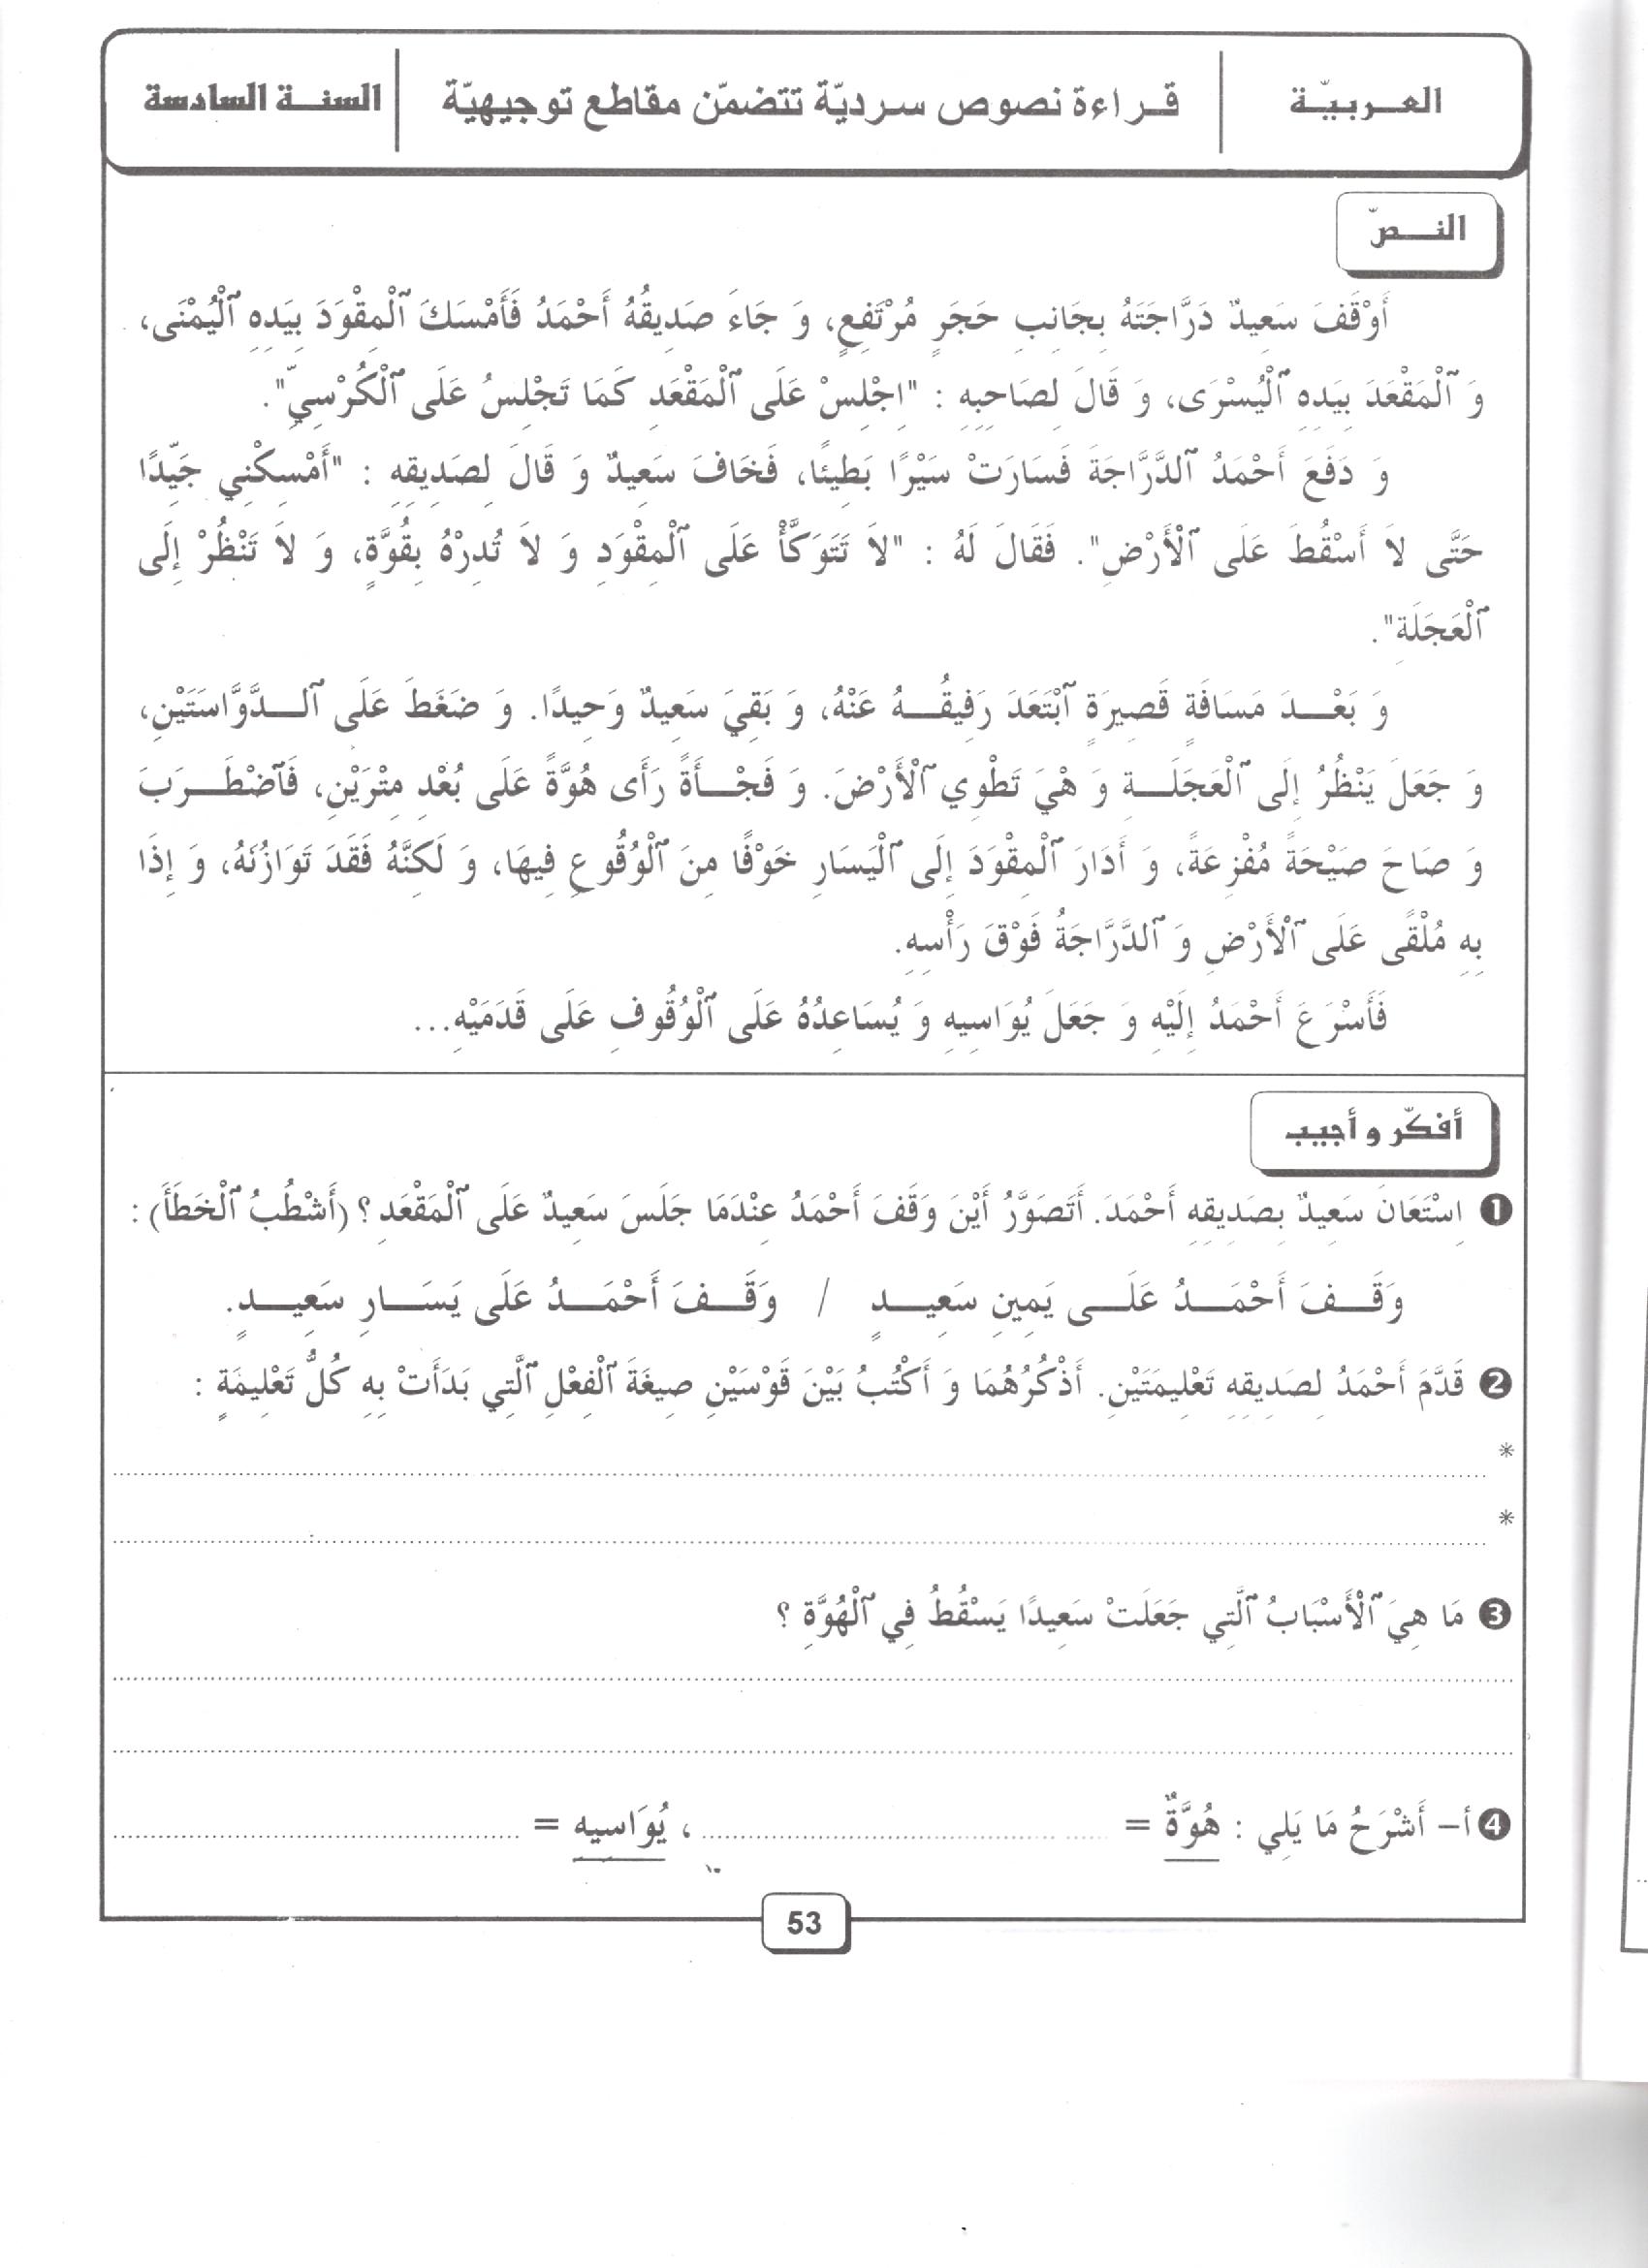 العربيّة
قراءة نصوص سرديّة تتضمّن مقاطع توجيهيّة
السنة السادسة
النصّ
أَوْقَفَ سَعِيدٌ دَرَّاجَتَهُ بِجَانِبِ حَجَرٍ مُرْتَفِعٍ، وَ جَاءَ صَدِيقُهُ أَحْمَدُ فَأَمْسَكَ ٱلْمِقْوَدَ بِيَدِهِ ٱلْيُمْنَى،
وَ ٱلْمَقْعَدَ بِيَدِهِ ٱلْيُسْرَى، وَ قَالَ لِصَاحِبِهِ : "اِجْلِسْ عَلَى ٱلْمَقْعَدِ كَمَا تَجْلِسُ عَلَى ٱلْكُرْسِيِّ".
وَ دَفَعَ أَحْمَدُ ٱلدَّرَّاجَةَ فَسَارَتْ سَيْرًا بَطِيئًا، فَخَافَ سَعِيدٌ وَ قَالَ لِصَدِيقِهِ : "أَمْسِكْنِي جَيِّدًا
حَتَّى لاَ أَسْقُطَ عَلَى ٱلْأَرْضِ". فَقَالَ لَهُ : "لاَ تَتَوَكَّأْ عَلَى ٱلْمِقْوَدِ وَ لاَ تُدِرْهُ بِقُوَّةٍ، وَ لاَ تَنْظُرْ إِلَى
ٱلْعَجَلَةِ".
وَ بَعْدَ مَسَافَةٍ قَصِيرَةٍ ٱبْتَعَدَ رَفِيقُهُ عَنْهُ، وَ بَقِيَ سَعِيدٌ وَحِيدًا. وَ ضَغَطَ عَلَى ٱلدَّوَّاسَتَيْنِ،
وَ جَعَلَ يَنْظُرُ إِلَى ٱلْعَجَلَةِ وَ هْيَ تَطْوِي ٱلْأَرْضَ. وَ فَجْأَةً رَأَى هُوَّةً عَلَى بُعْدِ مِتْرَيْنِ، فَٱضْطَرَبَ
وَ صَاحَ صَيْحَةً مُفْزِعَةً، وَ أَدَارَ ٱلْمِقْوَدَ إِلَى ٱلْيَسَارِ خَوْفًا مِنَ ٱلْوُقُوعِ فِيهَا، وَ لَكِنَّهُ فَقَدَ تَوَازُنَهُ، وَ إِذَا
بِهِ مُلْقًى عَلَى ٱلْأَرْضِ وَ ٱلدَّرَّاجَةُ فَوْقَ رَأْسِهِ.
فَأَسْرَعَ أَحْمَدُ إِلَيْهِ وَ جَعَلَ يُوَاسِيهِ وَ يُسَاعِدُهُ عَلَى ٱلْوُقُوفِ عَلَى قَدَمَيْهِ...
أفكّر و أجيب
1 اِسْتَعَانَ سَعِيدٌ بِصَدِيقِهِ أَحْمَدَ. أَتَصَوَّرُ أَيْنَ وَقَفَ أَحْمَدُ عِنْدَمَا جَلَسَ سَعِيدٌ عَلَى ٱلْمَقْعَدِ ؟ (أَشْطُبُ ٱلْخَطَأَ) :
وَقَفَ أَحْمَدُ عَلَى يَمِينِ سَعِيدٍ / وَقَفَ أَحْمَدُ عَلَى يَسَارِ سَعِيدٍ.
2 قَدَّمَ أَحْمَدُ لِصَدِيقِهِ تَعْلِيمَتَيْنِ. أَذْكُرُهُمَا وَ أَكْتُبُ بَيْنَ قَوْسَيْنِ صِيغَةَ ٱلْفِعْلِ ٱلَّتِي بَدَأَتْ بِهِ كُلُّ تَعْلِيمَةٍ :
*
*
3 مَا هِيَ ٱلْأَسْبَابُ ٱلَّتِي جَعَلَتْ سَعِيدًا يَسْقُطُ فِي ٱلْهُوَّةِ ؟
4 أ- أَشْرَحُ مَا يَلِي : هُوَّةٌ = ............ ، يُوَاسِيهِ = ............
53